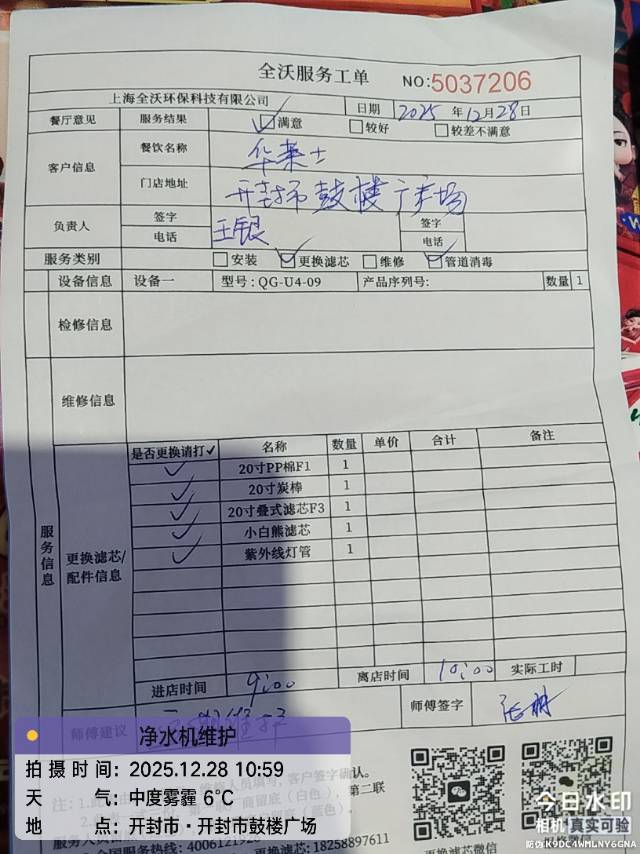 全沃服务工单 NO:5037206
上海全沃环保科技有限公司 日期 2025 年 12 月 28 日
餐厅意见 服务结果 ☑满意 □较好 □较差不满意
客户信息 餐饮名称 华莱士
门店地址 开封市鼓楼广场
负责人 签字 王银 签字
电话 电话
服务类别 □安装 ☑更换滤芯 □维修 ☑管道消毒
设备信息 设备一 型号:QG-U4-09 产品序列号: 数量 1
检修信息
维修信息
服务信息
更换滤芯/配件信息
是否更换请打✓ 名称 数量 单价 合计 备注
✓ 20寸PP棉F1 1
✓ 20寸炭棒 1
✓ 20寸叠式滤芯F3 1
✓ 小白熊滤芯 1
✓ 紫外线灯管 1
进店时间 9:00 离店时间 10:00 实际工时
师傅建议 师傅签字
净水机维护
拍摄时间:2025.12.28 10:59
天 气:中度雾霾 6℃
地 点:开封市·开封市鼓楼广场
18258897611
今日水印
相机 真实可验
防伪 K9DC4WMLNY6GNA